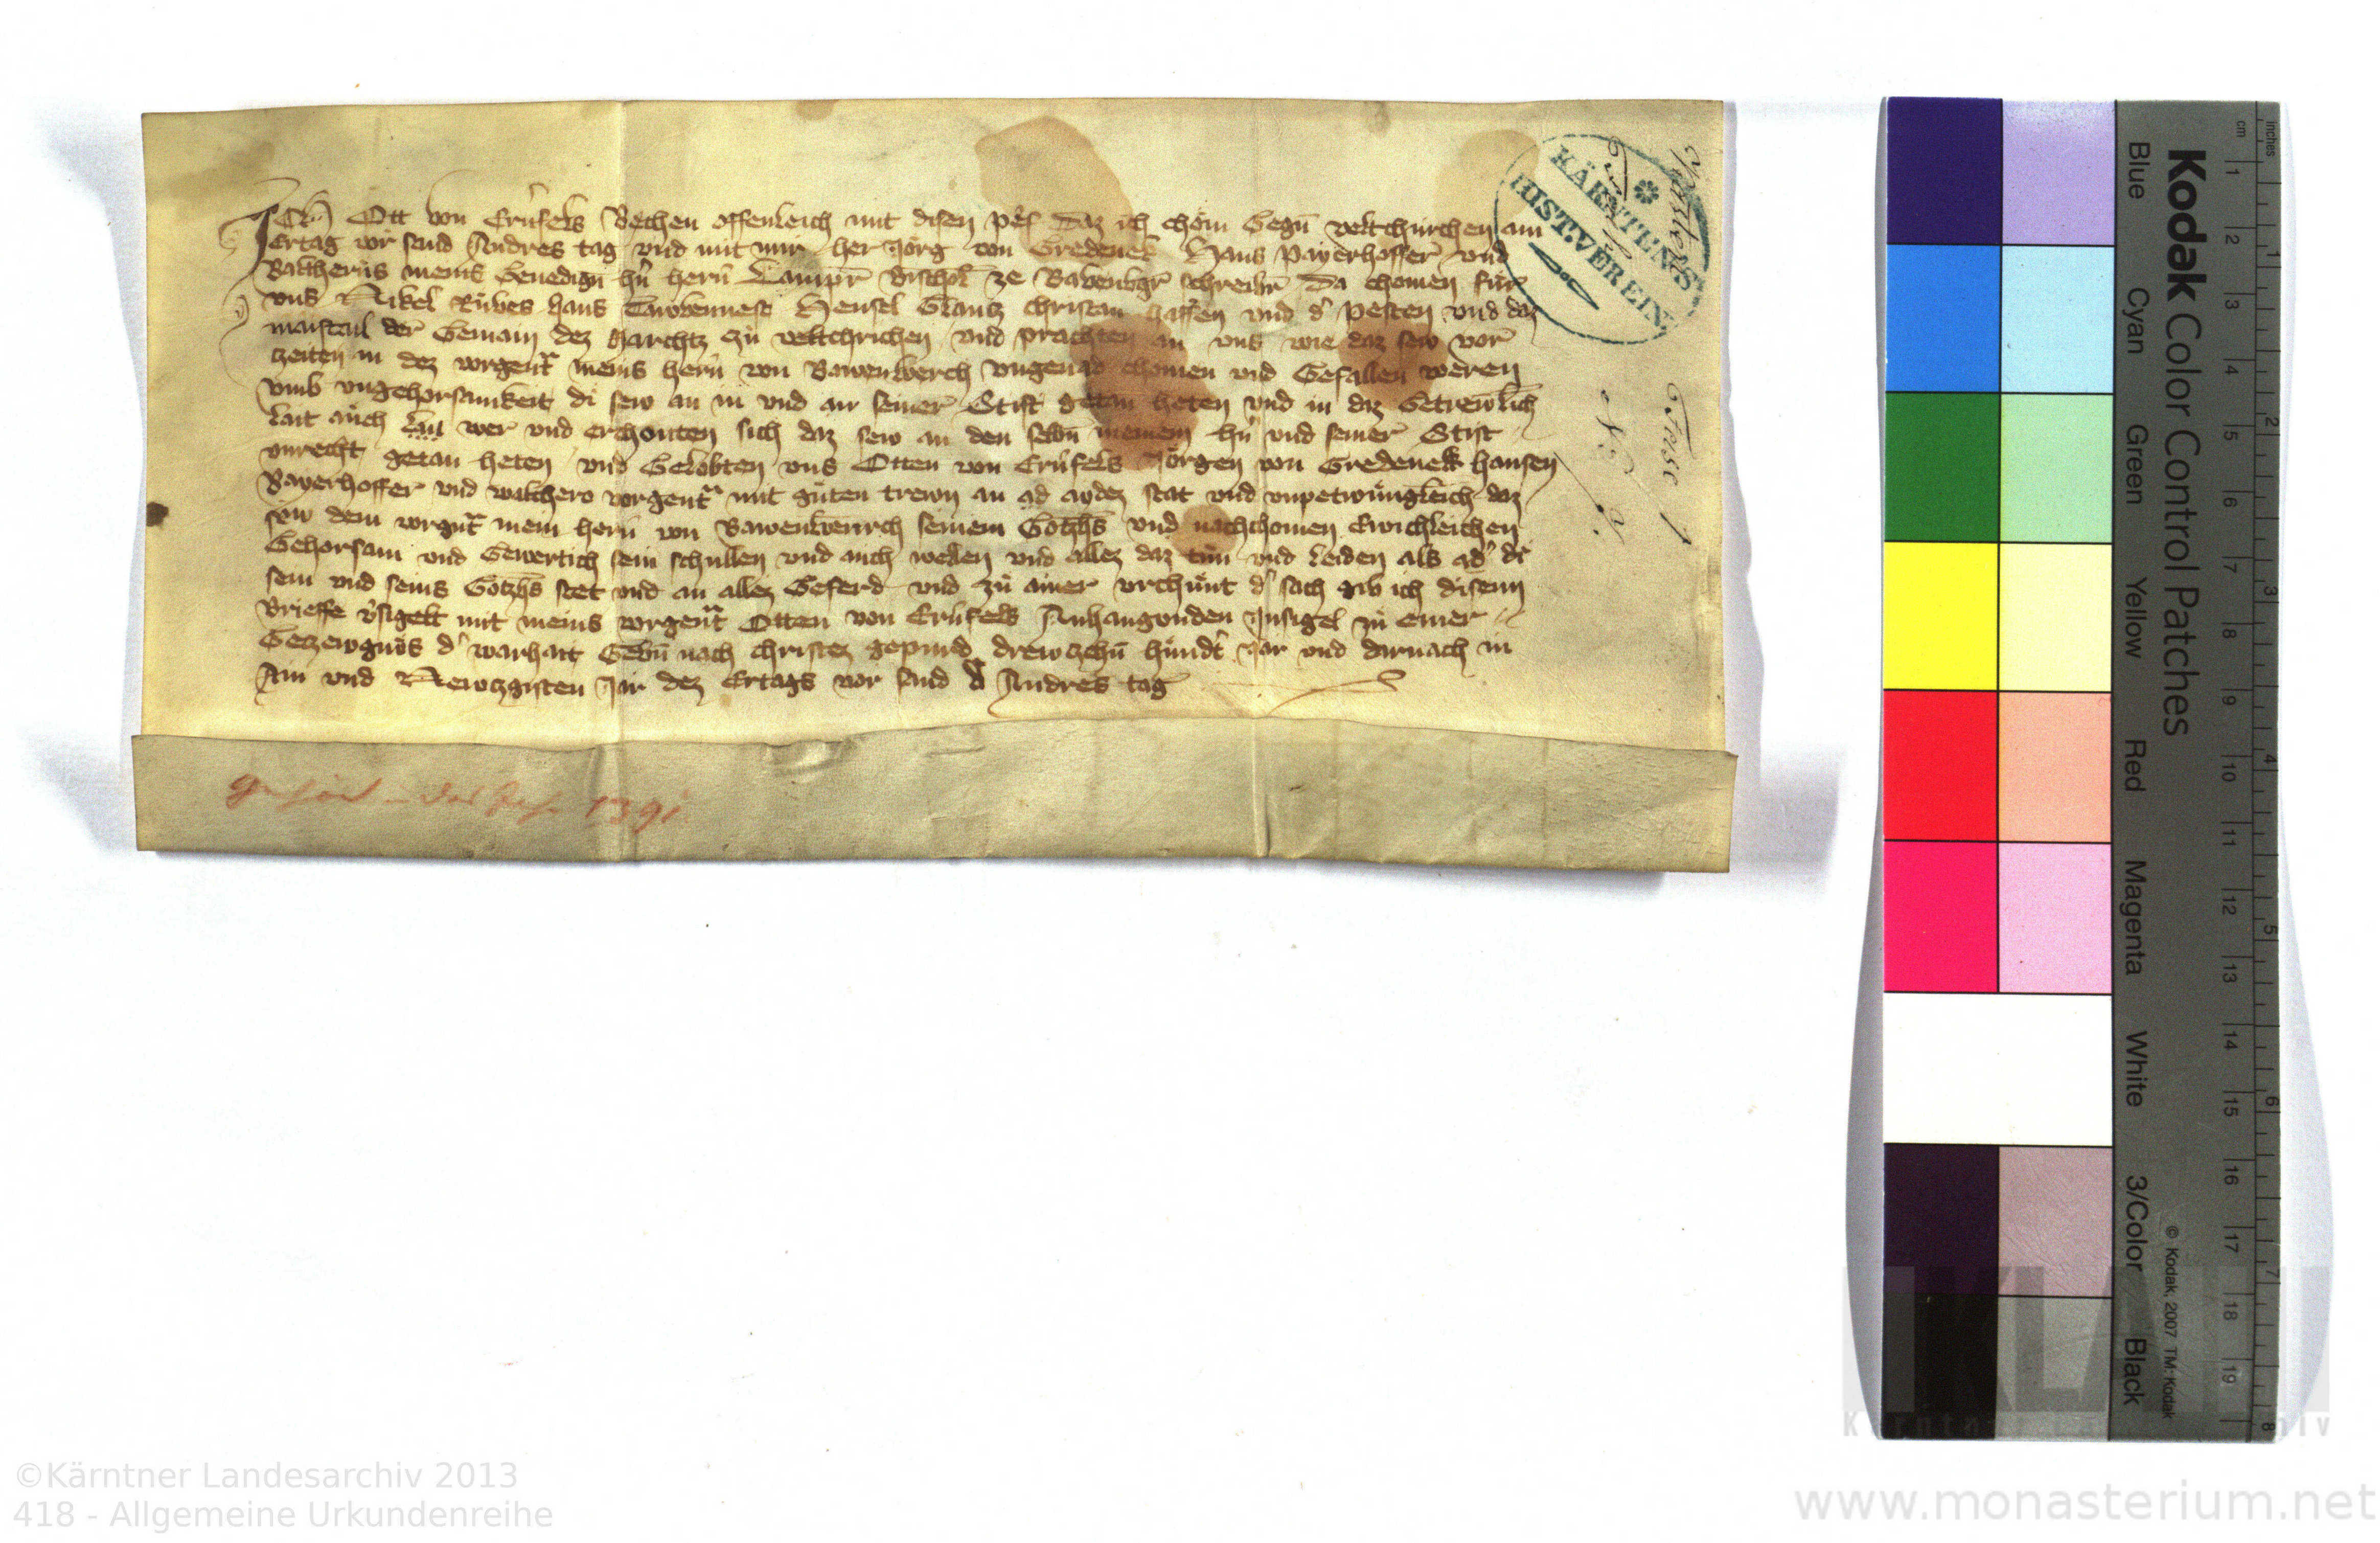 ICh Ott von Ernfels Vechen offenleich mit disen prief Daz ich chom Gegn veltchirchen am
Ertag vor send Andres tag vnd mit mir her Jorg von Gredenek Hans Payerhoffer vnd
Walchern meins Genedign hn hern Lampr Bischof ze Babenbgr schreibr Da chomen für
vns Nikel Rubes hans Hensel Glantz christan haffen vnd d pesten vnd daz
maistail der Gemain dez Marchtz zu veltchirichen vnd prachten an vns wie daz sew vor
tzeiten in dez vorgent meins hern von Bawenberch vngenad chomen vnd Gefallen weren
vmb vngehorsamkeit di sew an in vnd an seiner Stift getan heten vnd in daz Getrewlich
lait auch wer vnd erchonten sich daz sew an den selbn meinem hn vnd seiner Stift
vnrecht getan heten vnd Gelobten vns Otten von Ernfels Jörgen von Gredenekk hansen
Bayerhoffer vnd walchern vorgent mit güten trewn an ad aydez stat vnd vnpetwungleich daz
sew dem vorgnt mein hern von Bawenberch seinem Gotzhs vnd nachchomen Ewichleichen
Gehorsam vnd Gewertich sein schullen vnd auch wellen vnd allez daz tün vnd leiden als ad di
sein vnd seins Gotzhs stet vnd an allez Geferd vnd zu ainer vrchunt d sach gib ich disenn
Brieffe vsigelt mit meins vorgent Otten von Ernfels Anhangunden Insigel in einer
Getzewgnüs d warhait Gebn nach christez gepurd drewtzehn hundt Jar vnd darnach in
Ain vnd Newtzgisten Jar dez Ertags vor sand Andres tag
KÄRNTENS
HIST. VEREIN.
1391
Kodak Color Control Patches
Blue Cyan Green Yellow Red Magenta White 3/Color Black
© Kodak, 2007 TM: Kodak
cm 1 2 3 4 5 6 7 8 9 10 11 12 13 14 15 16 17 18 19
inches 1 2 3 4 5 6 7 8
KLA
Kärntner Landesarchiv
©Kärntner Landesarchiv 2013
418 - Allgemeine Urkundenreihe
www.monasterium.net